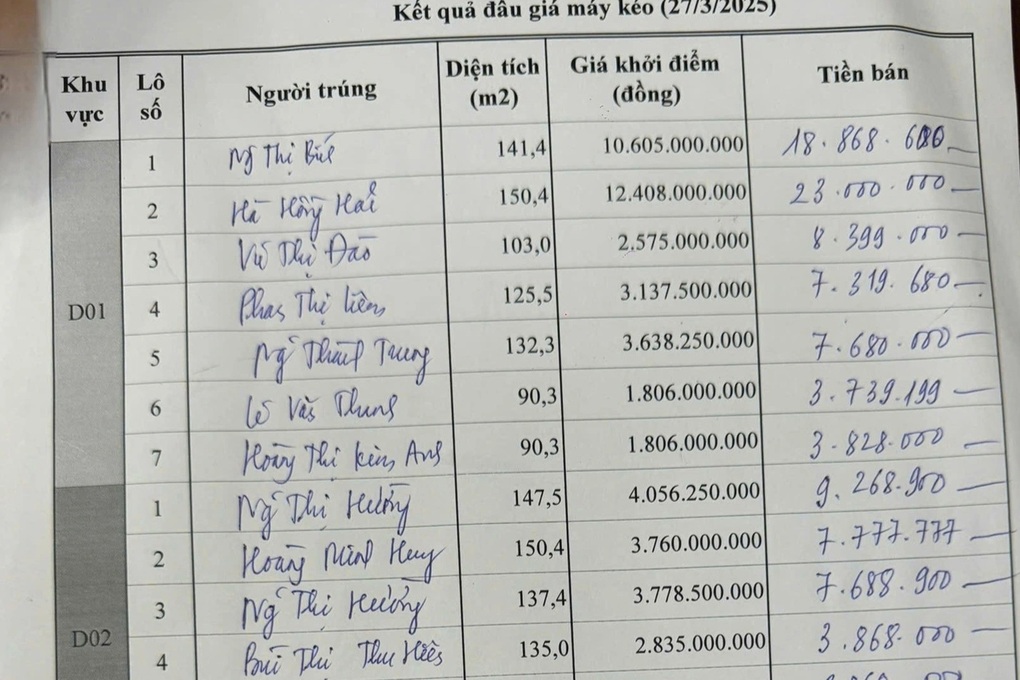 Kết quả đấu giá máy kéo (27/3/2025)
Khu vực Lô số Người trúng Diện tích (m2) Giá khởi điểm (đồng) Tiền bán
D01
1 Ng Thị Bút 141,4 10.605.000.000 18.868.600
2 Hà Hồng Hải 150,4 12.408.000.000 23.000.000
3 Vũ Thị Đào 103,0 2.575.000.000 8.399.000
4 Phan Thị Liên 125,5 3.137.500.000 7.319.680
5 Ng Thành Trung 132,3 3.638.250.000 7.680.000
6 Lê Văn Thung 90,3 1.806.000.000 3.739.199
7 Hoàng Thị Kim Anh 90,3 1.806.000.000 3.828.000
D02
1 Ng Thị Hường 147,5 4.056.250.000 9.268.900
2 Hoàng Minh Huy 150,4 3.760.000.000 7.777.777
3 Ng Thị Hường 137,4 3.778.500.000 7.688.900
4 Bùi Thị Thu Hiền 135,0 2.835.000.000 3.868.000